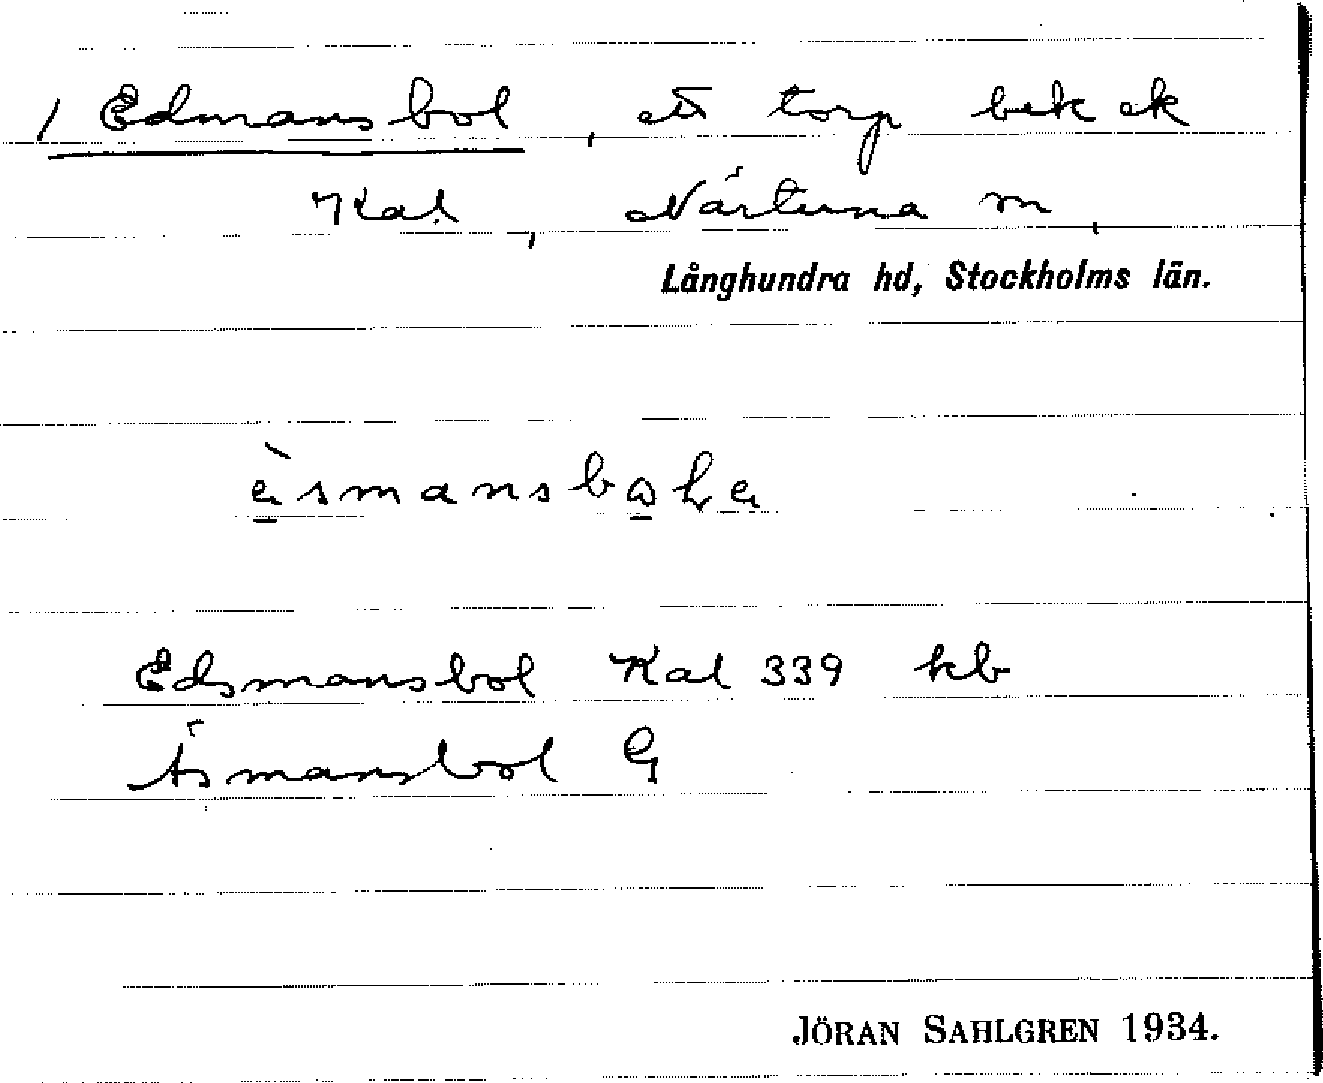 / Edmansbol, ett torp bek ek
Kal, Närtuna sn,
Långhundra hd, Stockholms län.
Edsmansbol Kal 339 kb
Äsmansbol G
JÖRAN SAHLGREN 1934.